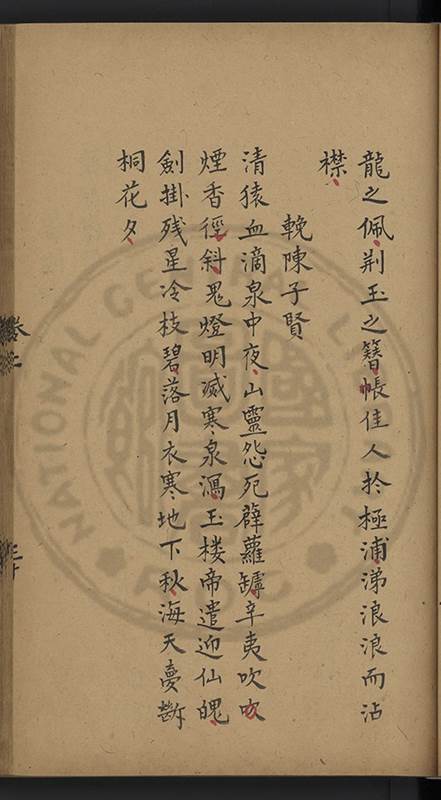 龍之佩荆玉之簪帳佳人於極浦涕浪浪而沾
襟
輓陳子賢
清猿血滴泉中夜山靈怨死薜蘿罅辛夷吹
煙香徑斜鬼燈明滅寒泉瀉玉楼帝遣迎仙魄
劍掛残星冷枝碧落月衣寒地下秋海天夢斷
桐花夕
卷二
三十
NATIONAL CENTRAL LIBRARY